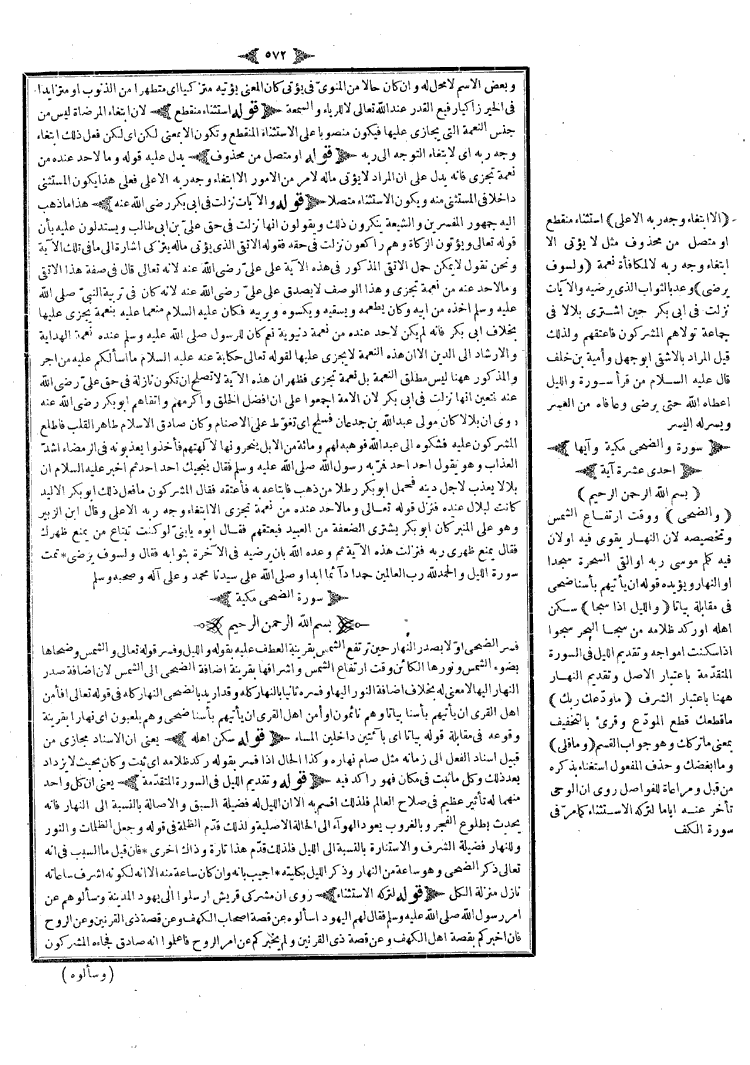 ٥٧٢
وبعض الاسم لامحل له وان كان حالا من المنوى فى يؤتى كان المعنى يؤتيه متزكيا اى متطهرا من الذنوب او متزايدا
فى الخير زاكيا رفيع القدر عند الله تعالى لا للرياء والسمعة ﴿ قوله استثناء منقطع ﴾ لان ابتغاء المرضاة ليس من
جنس النعمة التى يجازى عليها فيكون منصوبا على الاستثناء المنقطع وتكون الا بمعنى لكن اى لكن فعل ذلك ابتغاء
وجه ربه اى لابتغاء التوجه الى ربه ﴿ قوله او متصل من محذوف ﴾ يدل عليه قوله وما لاحد عنده من
نعمة تجزى فانه يدل على ان المراد لايؤتى ماله لامر من الامور الا ابتغاء وجه ربه الاعلى فعلى هذا يكون المستثنى
داخلا فى المستثنى منه ويكون الاستثناء متصلا ﴿ قوله والآيات نزلت فى ابى بكر رضى الله عنه ﴾ هذا ماذهب
اليه جمهور المفسرين والشيعة ينكرون ذلك ويقولون انها نزلت فى حق على بن ابى طالب ويستدلون عليه بأن
قوله تعالى ويؤتون الزكاة وهم راكعون نزلت فى حقه فقوله الاتقى الذى يؤتى ماله يتزكى اشارة الى مافى تلك الآية
ونحن نقول لايمكن حمل الاتقى المذكور فى هذه الآية على على رضى الله عنه لانه تعالى قال فى صفة هذا الاتقى
ومالاحد عنده من نعمة تجزى وهذا الوصف لايصدق على على رضى الله عنه لانه كان فى تربية النبى صلى الله
عليه وسلم اخذه من ابيه وكان يطعمه ويسقيه ويكسوه ويربيه فكان عليه السلام منعما عليه بنعمة يجزى عليها
بخلاف ابى بكر فانه لم يكن لاحد عنده من نعمة دنيوية نعم كان للرسول صلى الله عليه وسلم عنده نعمة الهداية
والارشاد الى الدين الا ان هذه النعمة لايجزى عليها لقوله تعالى حكاية عنه عليه السلام مااسألكم عليه من اجر
والمذكور ههنا ليس مطلق النعمة بل نعمة تجزى فظهر ان هذه الآية لاتصلح ان تكون نازلة فى حق على رضى الله
عنه فتعين انها نزلت فى ابى بكر لان الامة اجمعوا على ان افضل الخلق واكرمهم واتقاهم ابوبكر رضى الله عنه
روى ان بلالا كان مولى عبدالله بن جدعان فسلح اى تغوط على الاصنام وكان صادق الاسلام طاهر القلب فاطلع
المشركون عليه فشكوه الى عبدالله فوهبه لهم ومائة من الابل ينحرونها لآلهتهم فأخذوا يعذبونه فى الرمضاء اشد
العذاب وهو يقول احد احد فمر به رسول الله صلى الله عليه وسلم فقال ينجيك احد احد ثم اخبر عليه السلام ان
بلالا يعذب لاجل دينه فحمل ابوبكر رطلا من ذهب فابتاعه به فأعتقه فقال المشركون مافعل ذلك ابوبكر الا ليد
كانت لبلال عنده فنزل قوله تعالى ومالاحد عنده من نعمة تجزى الا ابتغاء وجه ربه الاعلى وقال ابن الزبير
وهو على المنبر كان ابوبكر يشترى الضعفة من العبيد فيعتقهم فقال ابوه يابنى لوكنت تبتاع من يمنع ظهرك
فقال بمنع ظهرى ربه فنزلت هذه الآية ثم وعده الله بان يرضيه فى الآخرة بثوابه فقال ولسوف يرضى * تمت
سورة الليل والحمدلله رب العالمين حمدا دآئما ابدا وصلى الله على سيدنا محمد وعلى آله وصحبه وسلم
﴿ سورة الضحى مكية ﴾
﴿ بسم الله الرحمن الرحيم ﴾
فسر الضحى اولا بصدر النهار حين ترتفع الشمس بقرينة العطف عليه بقوله والليل وفسر قوله تعالى والشمس وضحاها
بضوء الشمس ونورها الكائن وقت ارتفاع الشمس واشراقها بقرينة اضافة الضحى الى الشمس لان اضافة صدر
النهار اليها لامعنى له بخلاف اضافة النور اليها وفسره ثانيا بالنهار كله وقد اريد بالضحى النهار كله فى قوله تعالى افأمن
اهل القرى ان يأتيهم بأسنا بياتا وهم نائمون او أمن اهل القرى ان يأتيهم بأسنا ضحى وهم يلعبون اى نهارا بقرينة
وقوعه فى مقابلة قوله بياتا اى بائتين داخلين المساء ﴿ قوله سكن اهله ﴾ يعنى ان الاسناد مجازى من
قبيل اسناد الفعل الى زمانه مثل صام نهاره وكذا الحال اذا فسر بقوله ركد ظلامه اى ثبت وكان بحيث لايزداد
بعد ذلك وكل ماثبت فى مكان فهو راكد فيه ﴿ قوله وتقديم الليل فى السورة المتقدمة ﴾ يعنى ان كل واحد
منهما له تأثير عظيم فى صلاح العالم فلذلك اقسم به الا ان الليل له فضيلة السبق والاصالة بالنسبة الى النهار فانه
يحدث بطلوع الفجر وبالغروب يعود الهوآء الى الحالة الاصلية ولذلك قدم الظلمة فى قوله وجعل الظلمات والنور
وللنهار فضيلة الشرف والاستنارة بالنسبة الى الليل فلذلك قدم هذا تارة وذاك اخرى * فان قيل ماالسبب فى انه
تعالى ذكر الضحى وهو ساعة من النهار وذكر الليل بكليته * اجيب بانه وان كان ساعة منه الا انه لكونه اشرف ساعاته
نازل منزلة الكل ﴿ قوله لتركه الاستثناء ﴾ روى ان مشركى قريش ارسلوا الى يهود المدينة وسألوهم عن
امر رسول الله صلى الله عليه وسلم فقال لهم اليهود اسألوه عن قصة اصحاب الكهف وعن قصة ذى القرنين وعن الروح
فان اخبركم بقصة اهل الكهف وعن قصة ذى القرنين ولم يخبركم عن امر الروح فاعلموا انه صادق فجاءه المشركون
( وسألوه )
( الا ابتغاء وجه ربه الاعلى ) استثناء منقطع
او متصل من محذوف مثل لا يؤتى الا
ابتغاء وجه ربه لالمكافأة نعمة ( ولسوف
يرضى ) وعد بالثواب الذى يرضيه والآيات
نزلت فى ابى بكر حين اشترى بلالا فى
جماعة تولاهم المشركون فاعتقهم ولذلك
قيل المراد بالاشقى ابوجهل وأمية بن خلف
قال عليه السلام من قرأ سورة والليل
اعطاه الله حتى يرضى وعافاه من العسر
ويسر له اليسر
﴿ سورة والضحى مكية وآيها ﴾
﴿ احدى عشرة آية ﴾
( بسم الله الرحمن الرحيم )
( والضحى ) ووقت ارتفاع الشمس
وتخصيصه لان النهار يقوى فيه اولان
فيه كلم موسى ربه والقى السحرة سجدا
او النهار ويؤيده قوله ان يأتيهم بأسنا ضحى
فى مقابلة بياتا ( والليل اذا سجا ) سكن
اهله اوركد ظلامه من سجا البحر سجوا
اذا سكنت امواجه وتقديم الليل فى السورة
المتقدمة باعتبار الاصل وتقديم النهار
ههنا باعتبار الشرف ( ماودعك ربك )
ماقطعك قطع المودع وقرئ بالتخفيف
بمعنى ماتركك وهو جواب القسم ( وماقلى )
وما ابغضك وحذف المفعول استغناء بذكره
من قبل ومراعاة للفواصل روى ان الوحى
تأخر عنه اياما لتركه الاستثناء كمامر فى
سورة الكهف